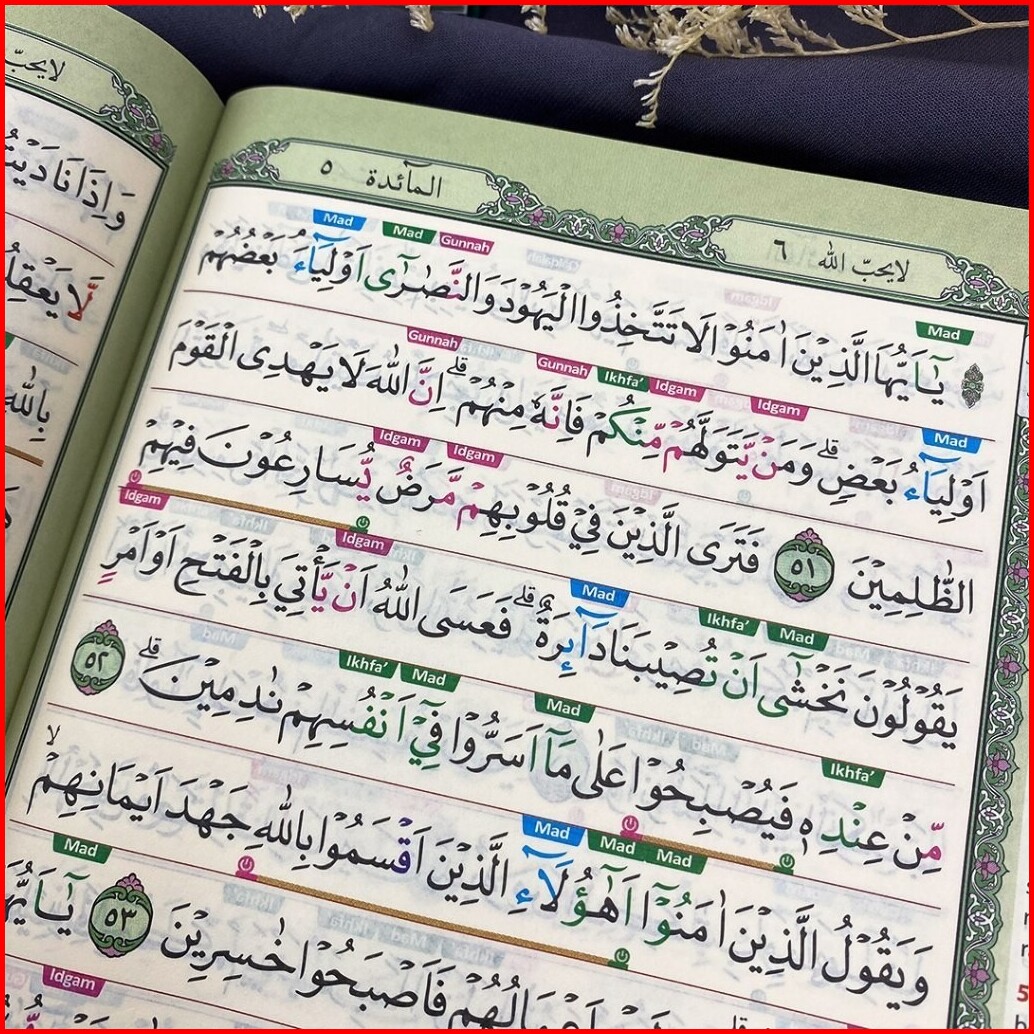 لايحبّ الله ٦
المآئدة ٥
Mad Gunnah Mad Mad
يٰٓاَيُّهَا الَّذِيْنَ اٰمَنُوْا لَا تَتَّخِذُوا الْيَهُوْدَ وَالنَّصٰرٰٓى اَوْلِيَاۤءَ ۘ بَعْضُهُمْ
Mad Idgam Idgam Ikhfa' Gunnah Gunnah
اَوْلِيَاۤءُ بَعْضٍۗ وَمَنْ يَّتَوَلَّهُمْ مِّنْكُمْ فَاِنَّهٗ مِنْهُمْۗ اِنَّ اللّٰهَ لَا يَهْدِى الْقَوْمَ
Idgam Idgam
الظّٰلِمِيْنَ ٥١ فَتَرَى الَّذِيْنَ فِيْ قُلُوْبِهِمْ مَّرَضٌ يُّسَارِعُوْنَ فِيْهِمْ
Ikhfa' Mad Mad Idgam Idgam
يَقُوْلُوْنَ نَخْشٰٓى اَنْ تُصِيْبَنَا دَاۤىِٕرَةٌ ۗفَعَسَى اللّٰهُ اَنْ يَّأْتِيَ بِالْفَتْحِ اَوْ اَمْرٍ
Ikhfa' Mad Mad Ikhfa'
مِّنْ عِنْدِهٖ فَيُصْبِحُوْا عَلٰى مَآ اَسَرُّوْا فِيْٓ اَنْفُسِهِمْ نٰدِمِيْنَۗ ٥٢
Mad Mad Mad
وَيَقُوْلُ الَّذِيْنَ اٰمَنُوْٓا اَهٰٓؤُلَاۤءِ الَّذِيْنَ اَقْسَمُوْا بِاللّٰهِ جَهْدَ اَيْمَانِهِمْۙ
Mad
اَعْمَالُهُمْ فَاَصْبَحُوْا خٰسِرِيْنَ ٥٣
Idgam
لايحبّ
وَاِذَا نَادَيْتُ
لَّا يَعْقِلُ
بِاللّٰهِ